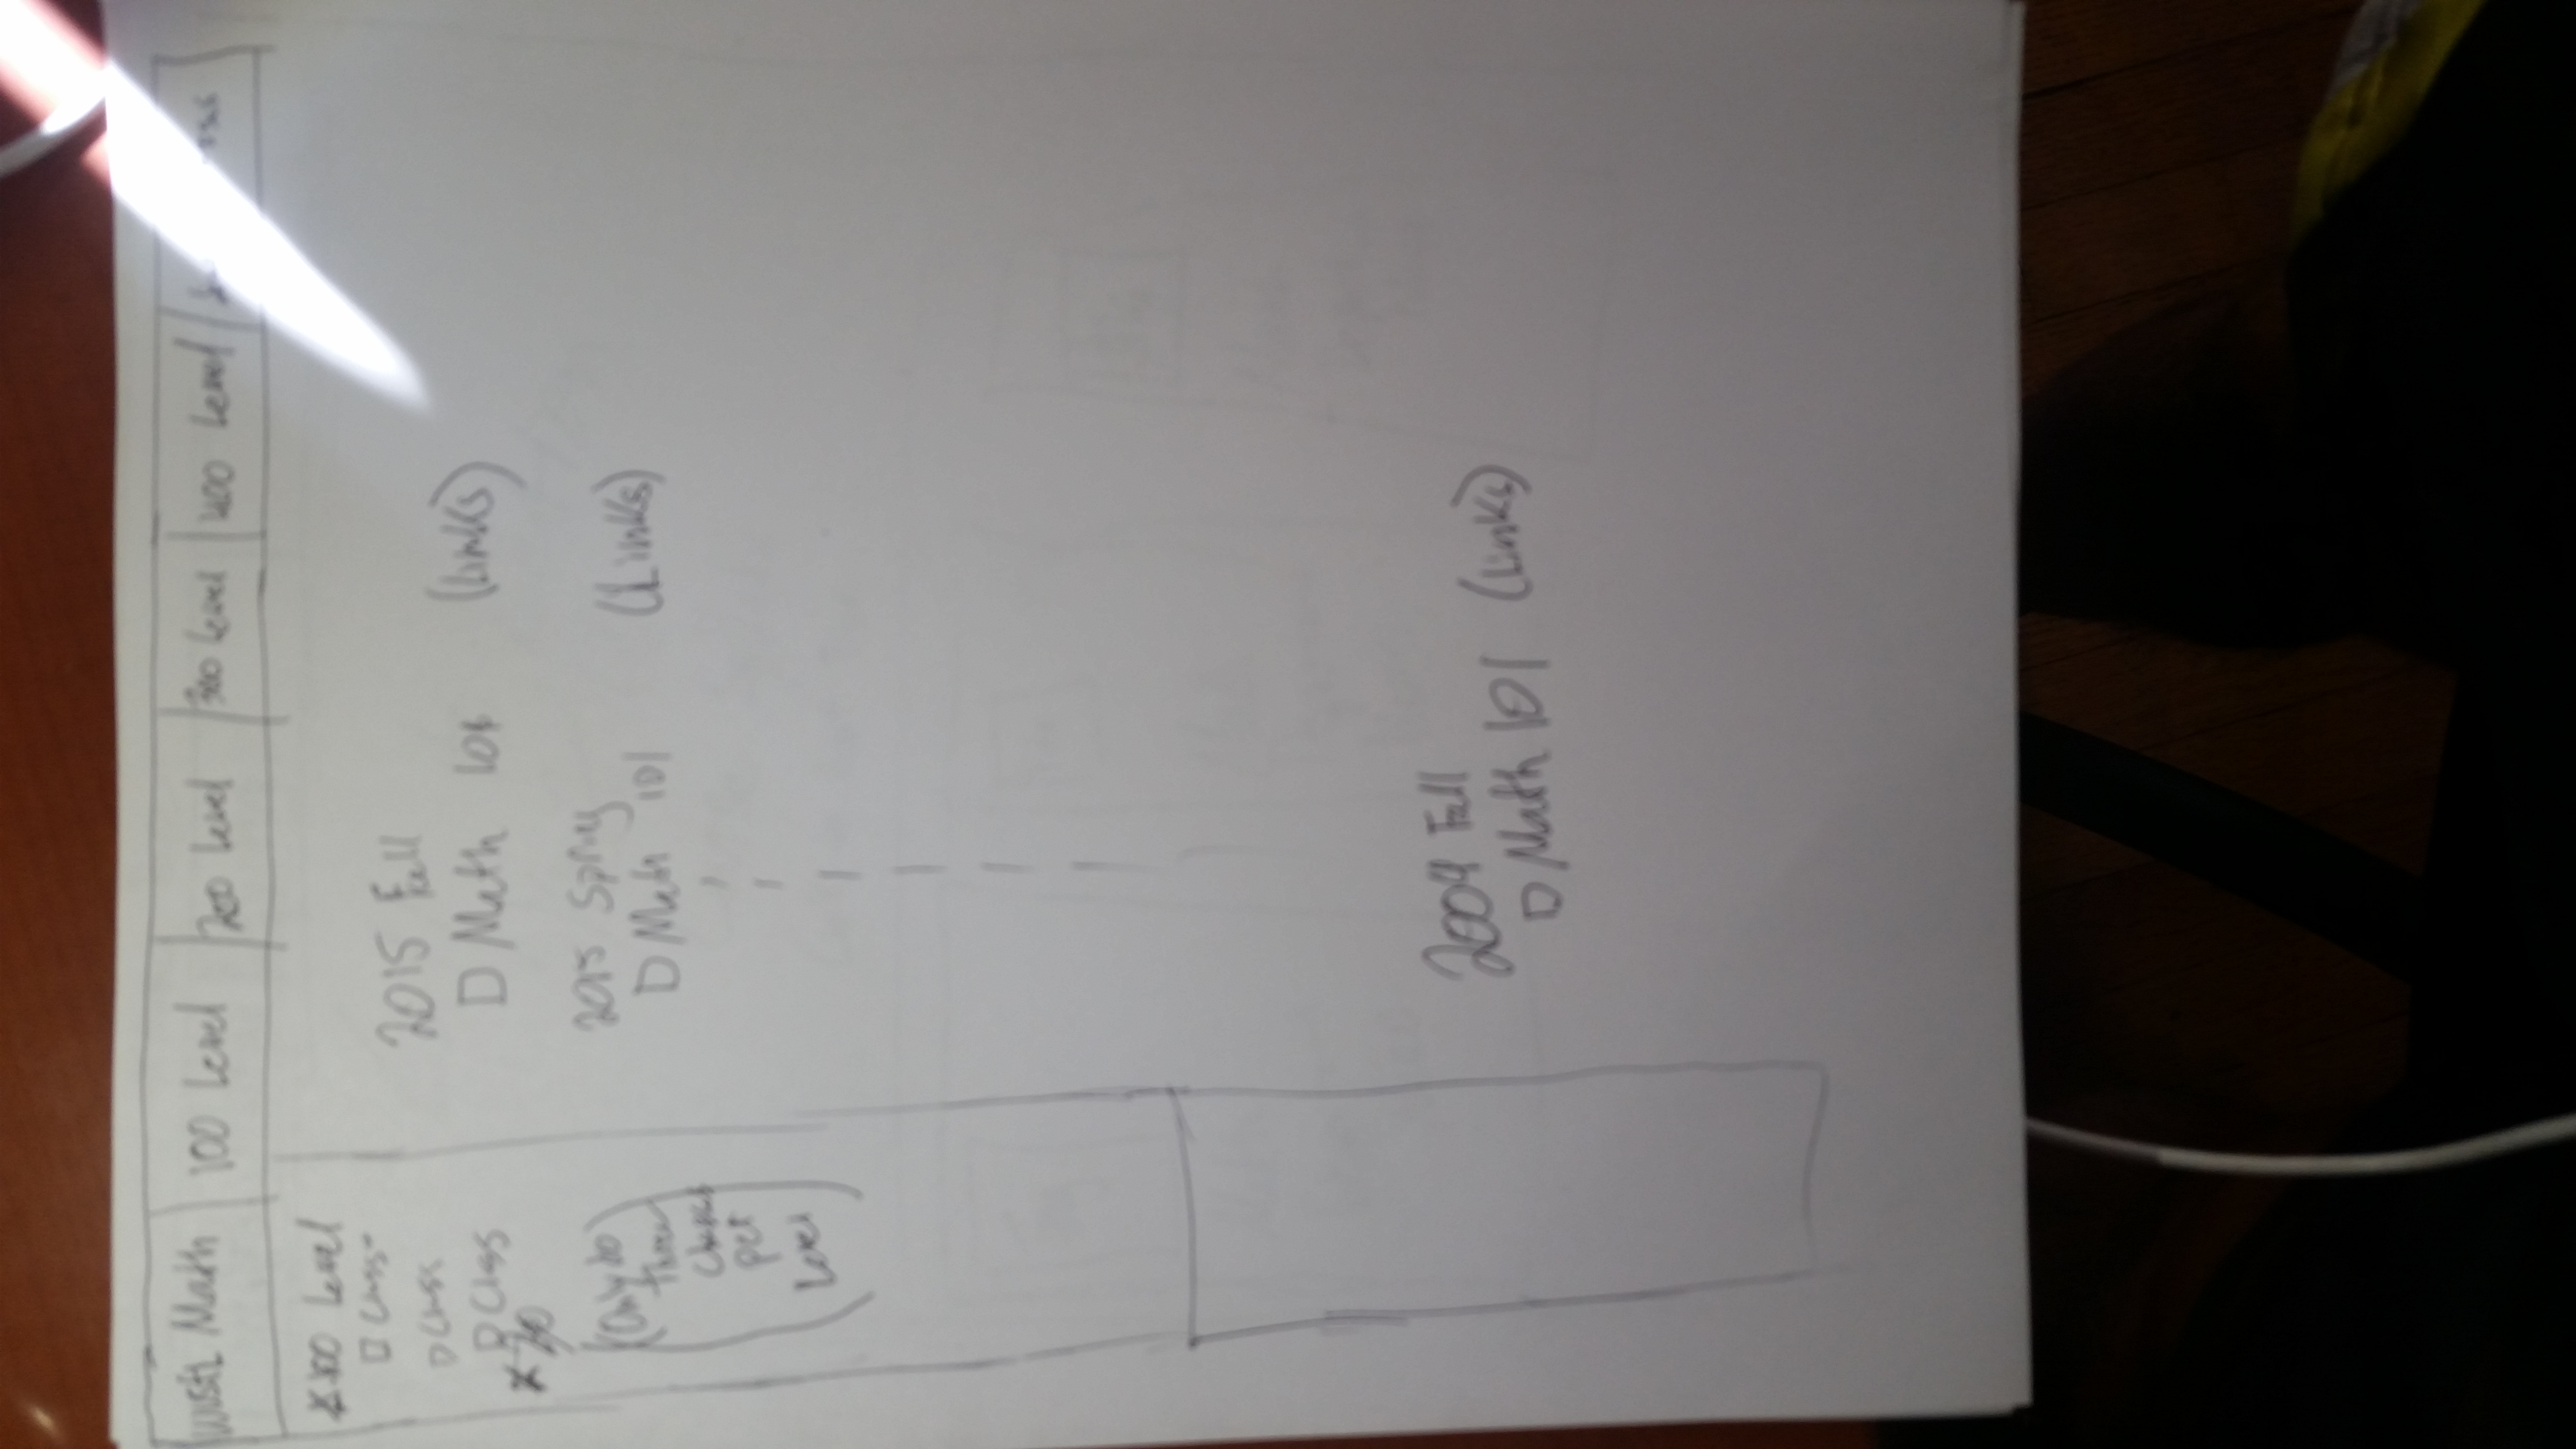 WUSTL Math 100 Level 200 Level 300 Level 400 Level
100 Level
Class
Class
Class
(Only do
three
classes
per
Level)
2015 Fall
Math 101 (Links)
2015 Spring
Math 101 (Links)
2004 Fall
Math 101 (Links)